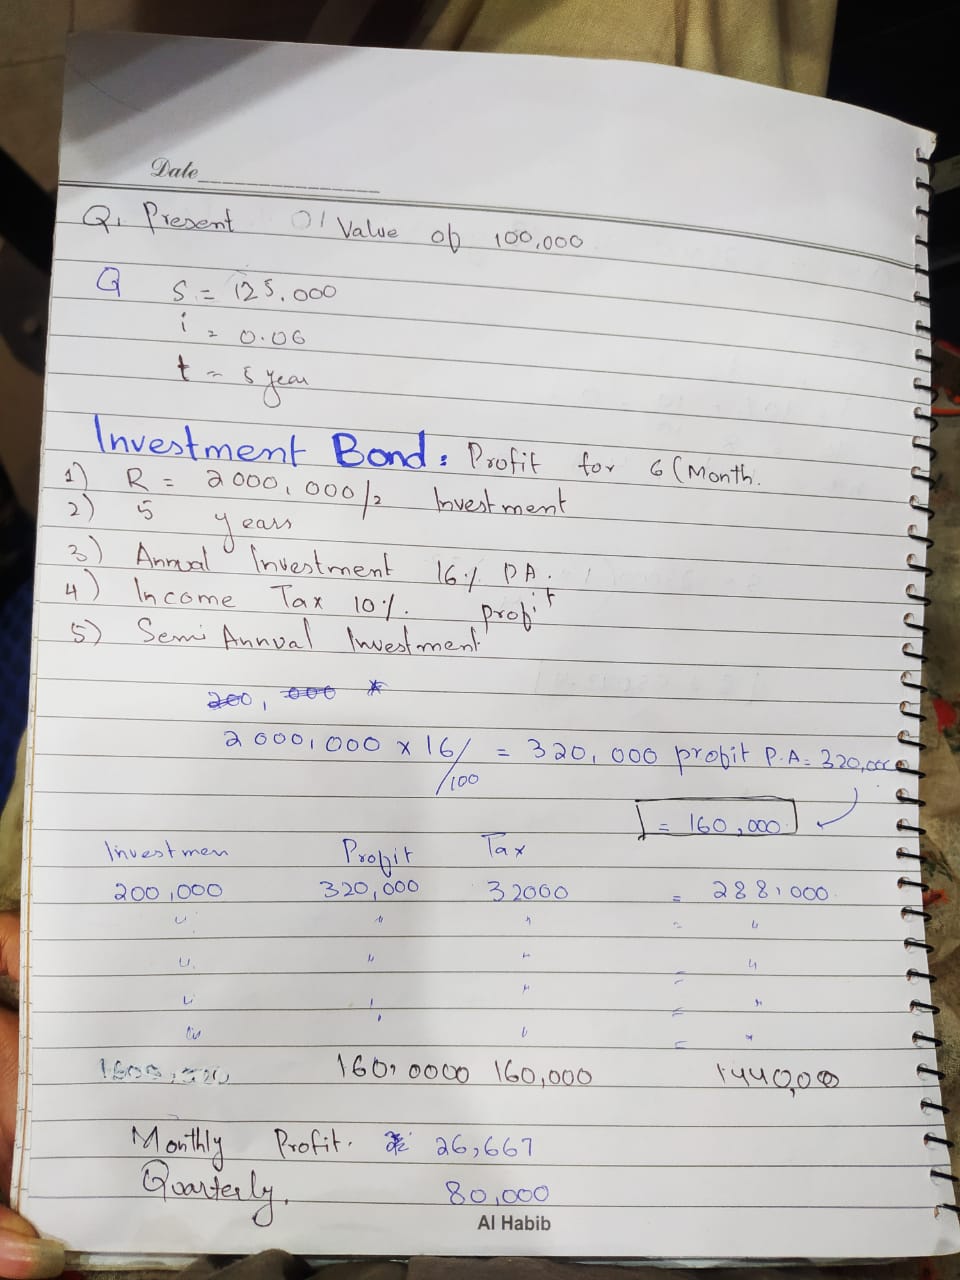 Date
Q. Present Value of 100,000
Q S = 125,000
i = 0.06
t = 5 year
Investment Bond: Profit for 6 (Month.
1) R = 2000,000/2 Investment
2) 5 years
3) Annual Investment 16% P.A.
4) Income Tax 10%. profit
5) Semi Annual Investment
200, 000 *
2000,000 x 16/100 = 320,000 profit P.A = 320,000
= 160,000
Investmen Profit Tax
200,000 320,000 32000 = 288,000
" " " = "
" " " = "
" " " = "
" " " = "
160,0000 160,000 1440,00
Monthly Profit. 26,667
Quarterly. 80,000
Al Habib